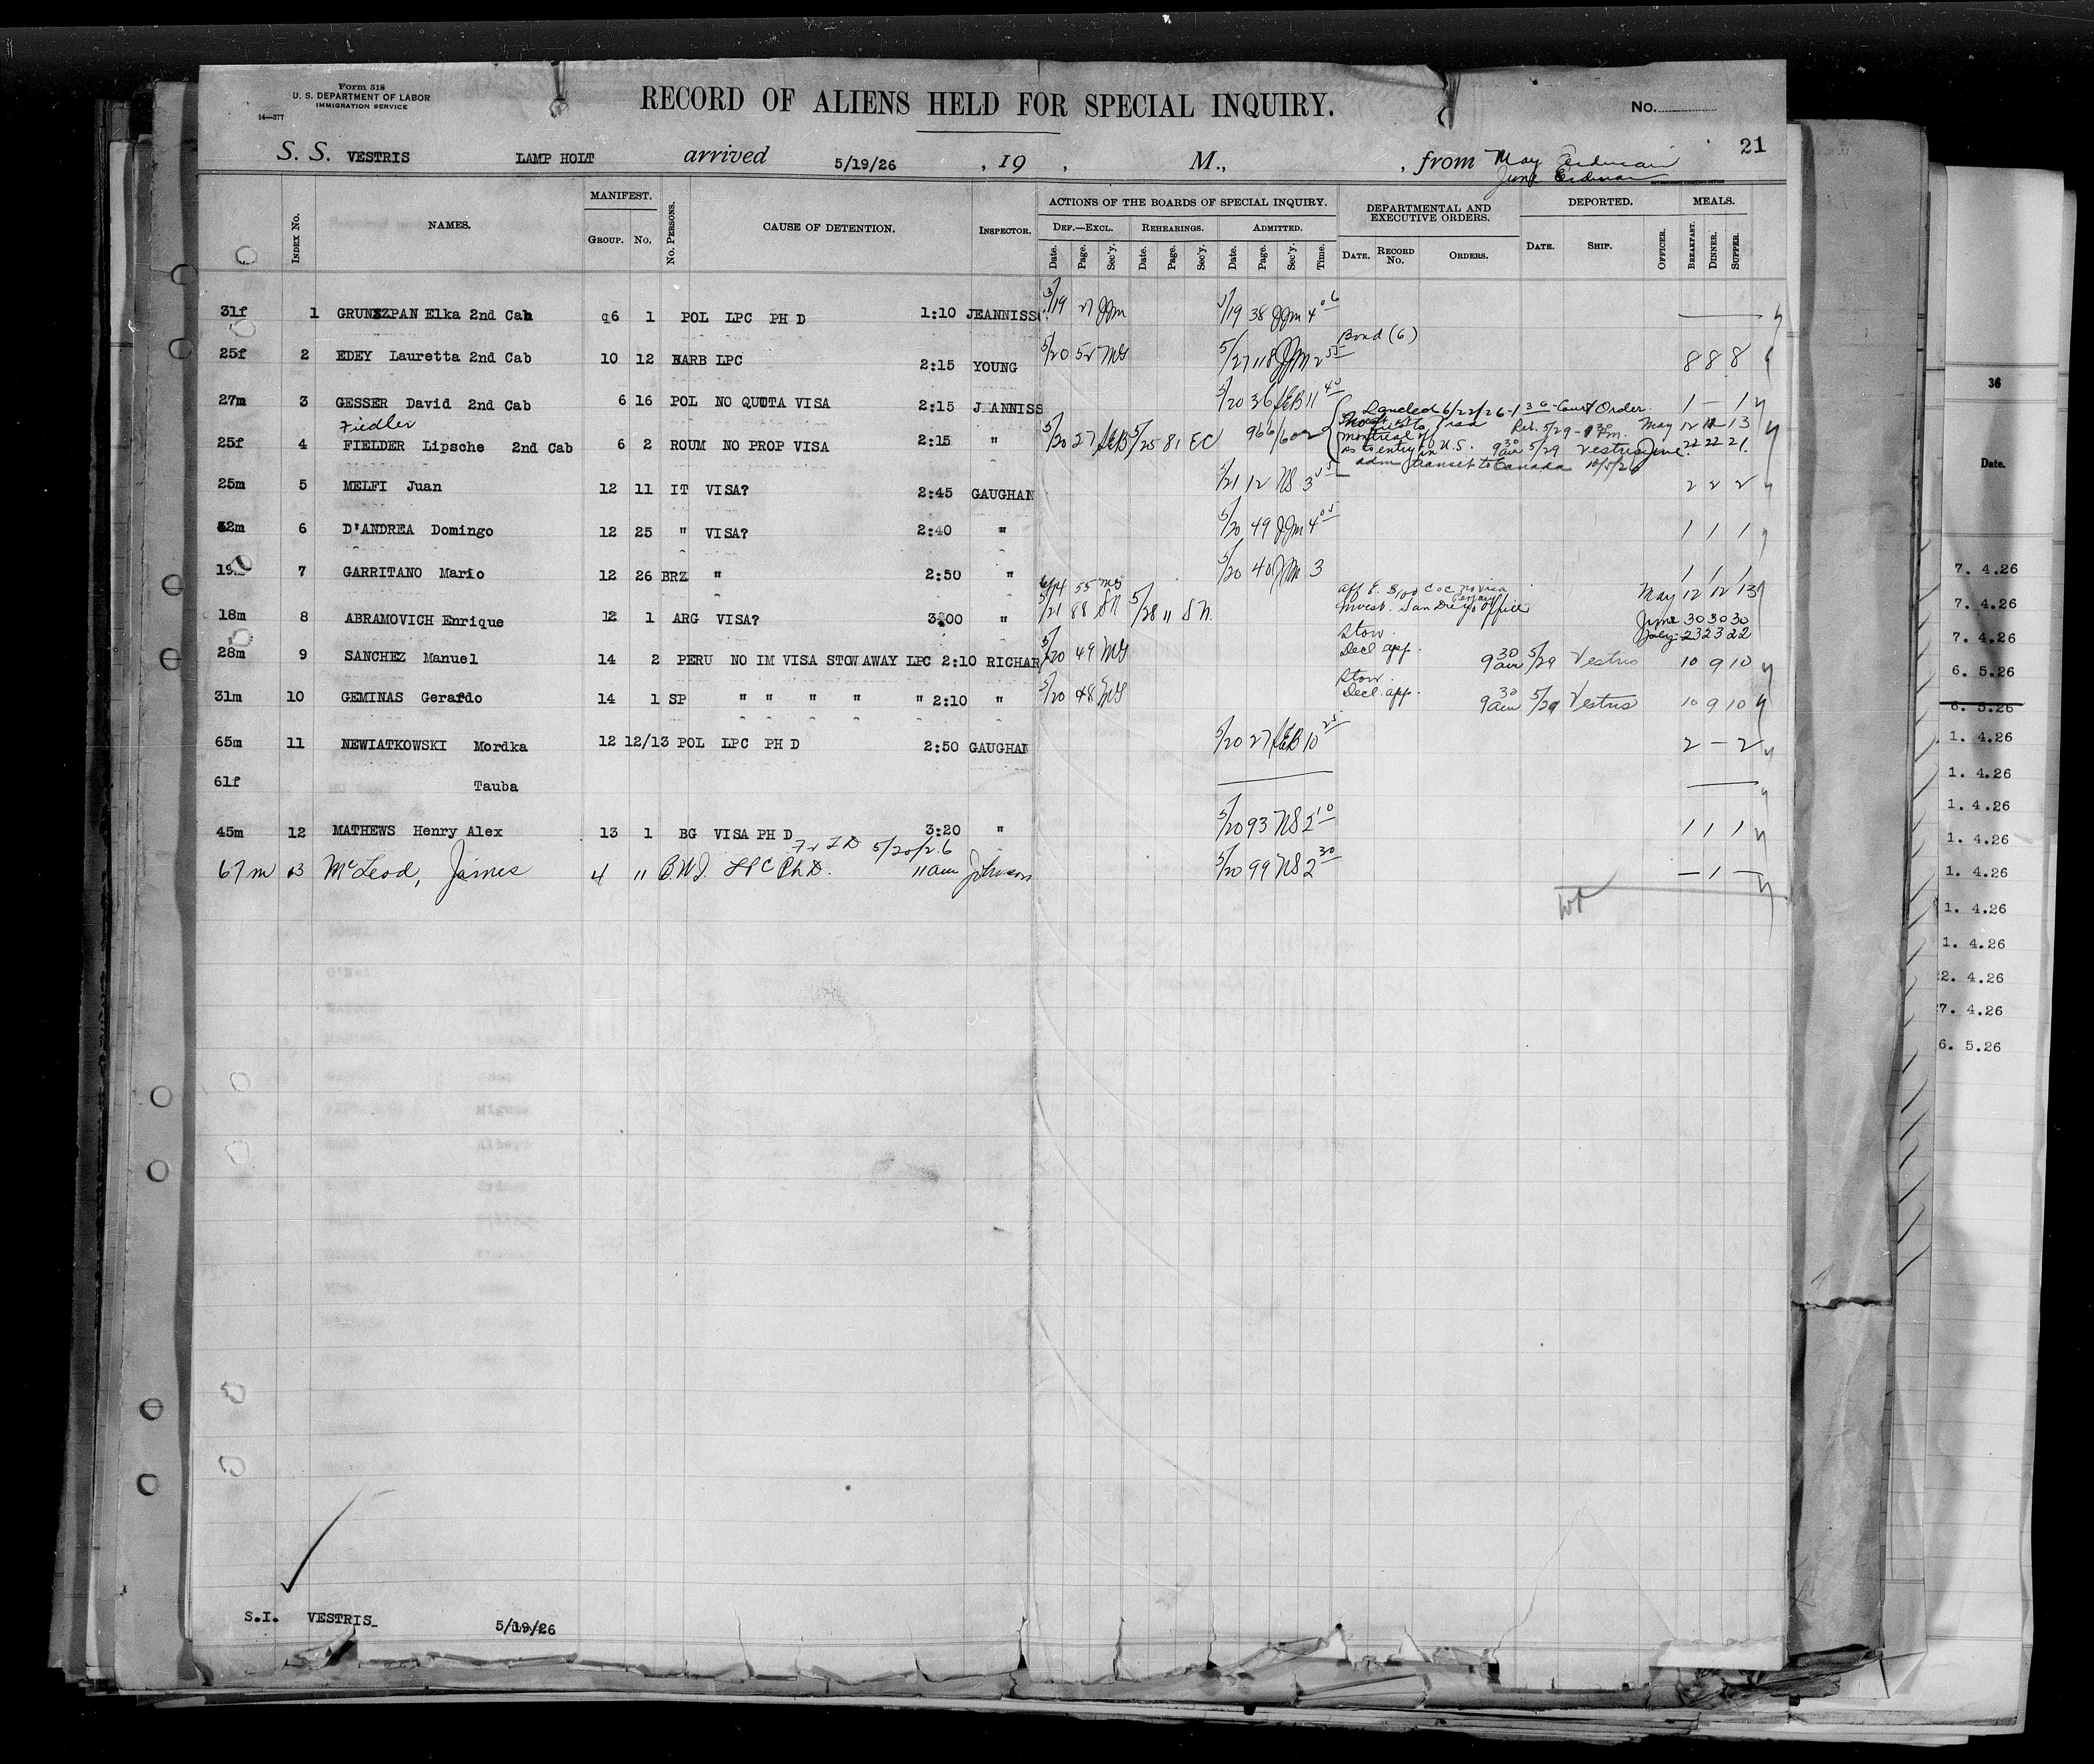 Form 518
U. S. DEPARTMENT OF LABOR
IMMIGRATION SERVICE
14—377
RECORD OF ALIENS HELD FOR SPECIAL INQUIRY.
No.
21
S. S. VESTRIS LAMP HOLT arrived 5/19/26 , 19 , M., , from May
June
Index No. NAMES. MANIFEST. GROUP. No. No. PERSONS. CAUSE OF DETENTION. INSPECTOR. ACTIONS OF THE BOARDS OF SPECIAL INQUIRY. DEF.—EXCL. Date. Page. Sec'y. REHEARINGS. Date. Page. Sec'y. ADMITTED. Date. Page. Sec'y. Time. DEPARTMENTAL AND EXECUTIVE ORDERS. DATE. RECORD No. ORDERS. DEPORTED. DATE. SHIP. OFFICER. MEALS. BREAKFAST. DINNER. SUPPER.
31f 1 GRUNSZPAN Elka 2nd Cab 6 1 POL LPC PH D 1:10 JEANNISS 5/19 38 JJM 4
Bond (6)
25f 2 EDEY Lauretta 2nd Cab 10 12 BARB LPC 2:15 YOUNG 5/20 52 MG 5/27 118 JJM 2 55 8 8 8
27m 3 GESSER David 2nd Cab 6 16 POL NO QUOTA VISA 2:15 JEANNISS 5/20 36 11 40 1 — 1
Landed 6/22/26 - Court Order.
Fiedler
25f 4 FIELDER Lipsche 2nd Cab 6 2 ROUM NO PROP VISA 2:15 " 5/20 27 5/25 81 EC 966/602 May 12 12 13
Montreal
as to entry in U.S. 9 30 am 5/29 Vestris June 22 22 21
adm transit to Canada
25m 5 MELFI Juan 12 11 IT VISA? 2:45 GAUGHAN 5/21 12 NS 3 2 2 2
32m 6 D'ANDREA Domingo 12 25 " VISA? 2:40 " 5/20 49 JJM 4 05 1 1 1
19 7 GARRITANO Mario 12 26 BRZ " 2:50 " 5/20 40 JJM 3 1 1 1
55 MG no visa May 12 12 13
18m 8 ABRAMOVICH Enrique 12 1 ARG VISA? 3:00 " 5/21 88 SN 5/28 11 SN Invest. San Diego Office June 30 30 30
July 23 23 22
Stow.
28m 9 SANCHEZ Manuel 14 2 PERU NO IM VISA STOWAWAY LPC 2:10 RICHAR 5/20 49 MG Decl app. 9 30 am 5/29 Vestris 10 9 10
Stow.
31m 10 GEMINAS Gerardo 14 1 SP " " " " " 2:10 " 5/20 48 MG Decl. app. 9 30 am 5/29 Vestris 10 9 10
65m 11 NEWIATKOWSKI Mordka 12 12/13 POL LPC PH D 2:50 GAUGHAN 5/20 27 10 25 2 — 2
61f Tauba
45m 12 MATHEWS Henry Alex 13 1 BG VISA PH D 3:20 " 5/20 93 NS 2 10 1 1 1
5/20/26
67m 13 McLeod, James 4 11 B.W.I. LPC Ph D. 11am Johnson 5/20 99 NS 2 30 — 1 —
S.I. VESTRIS 5/19/26
36
Date.
7. 4.26
7. 4.26
7. 4.26
6. 5.26
6. 5.26
1. 4.26
1. 4.26
1. 4.26
1. 4.26
1. 4.26
1. 4.26
1. 4.26
22. 4.26
27. 4.26
6. 5.26